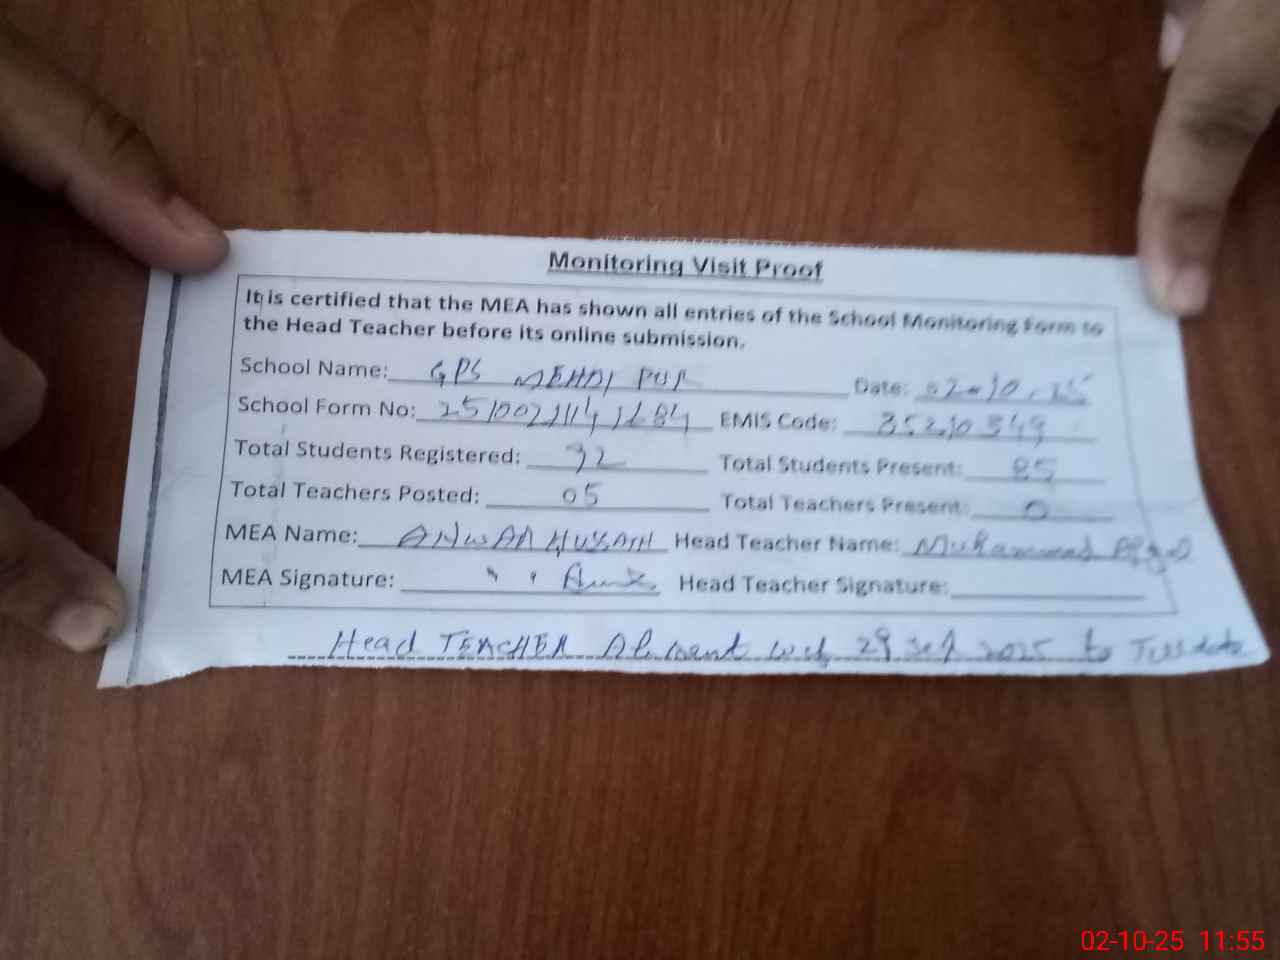 Monitoring Visit Proof
It is certified that the MEA has shown all entries of the School Monitoring Form to
the Head Teacher before its online submission.
School Name: GPS MEHDI PUR Date: 02-10.25
School Form No: EMIS Code: 35210349
Total Students Registered: 92 Total Students Present: 85
Total Teachers Posted: 05 Total Teachers Present: 0
MEA Name: ANWAR HUSAIN Head Teacher Name: Muhammad Afzal
MEA Signature: Head Teacher Signature:
Head TEACHER Absent w.e.f 29 Sep 2025 to Till date
02-10-25 11:55